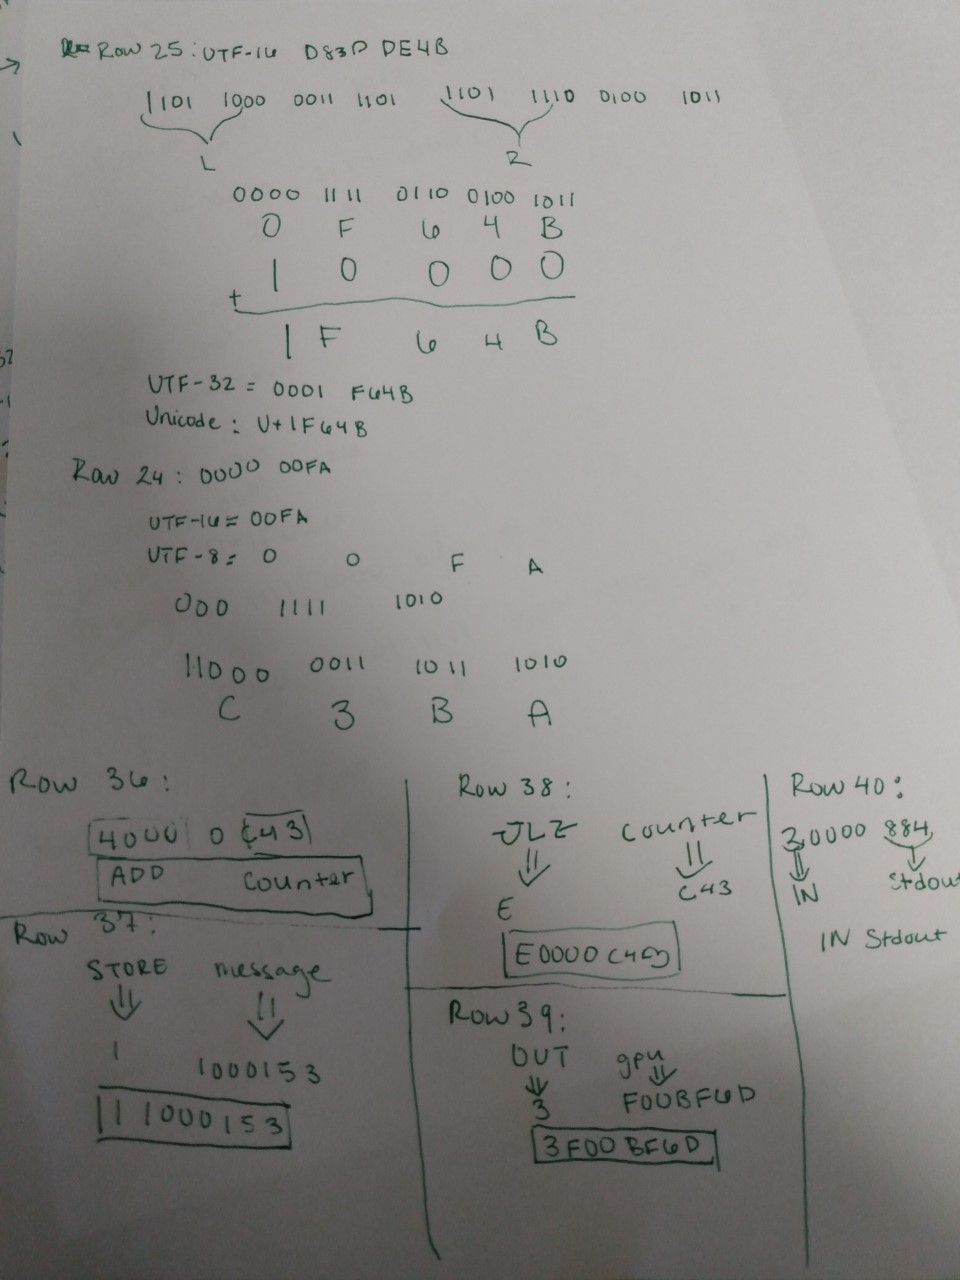 Row 25: UTF-16 D83D DE4B
1101 1000 0011 1101 1101 1110 0100 1011
L R
0000 1111 0110 0100 1011
0 F 6 4 B
1 0 0 0 0
+
1 F 6 4 B
UTF-32 = 0001 F64B
Unicode: U+1F64B
Row 24: 0000 00FA
UTF-16 = 00FA
UTF-8 = 0 0 F A
000 1111 1010
11000 0011 1011 1010
C 3 B A
Row 36:
4000 0 C43
ADD Counter
Row 37:
STORE message
1 1000153
11000153
Row 38:
JLZ Counter
E C43
E0000C43
Row 39:
OUT gpu
3 F00BF6D
3F00BF6D
Row 40:
3,0000 884,
IN Stdout
IN Stdout